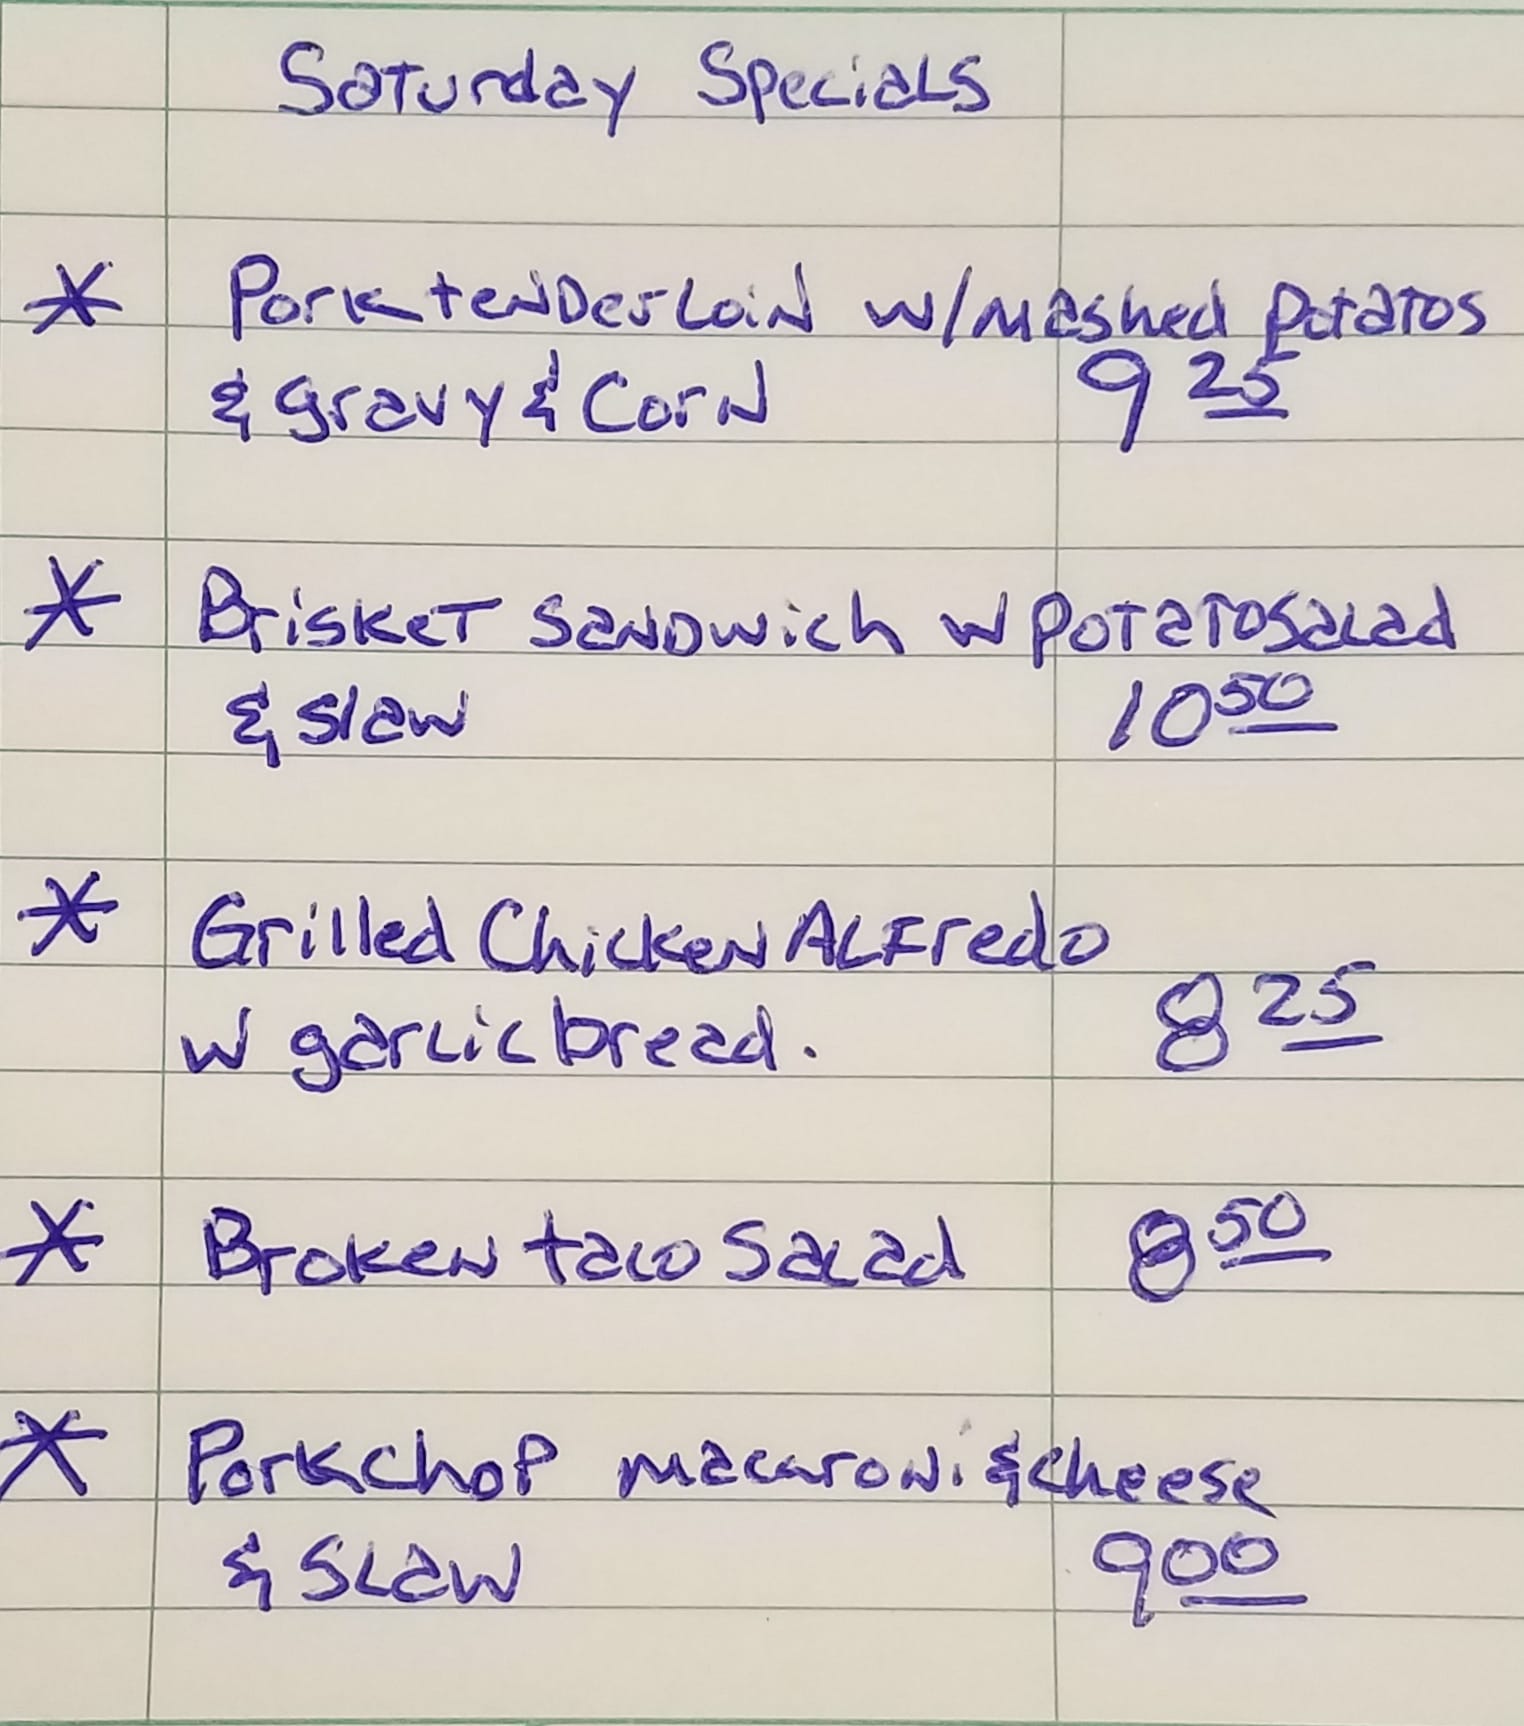 Saturday Specials
* Pork tenderloin w/mashed potatos
& gravy & Corn 9 25
* Brisket sandwich w potato salad
& slaw 10 50
* Grilled Chicken Alfredo
w garlic bread. 8 25
* Broken taco Salad 8 50
* Porkchop macaroni & cheese
& slaw 9 00